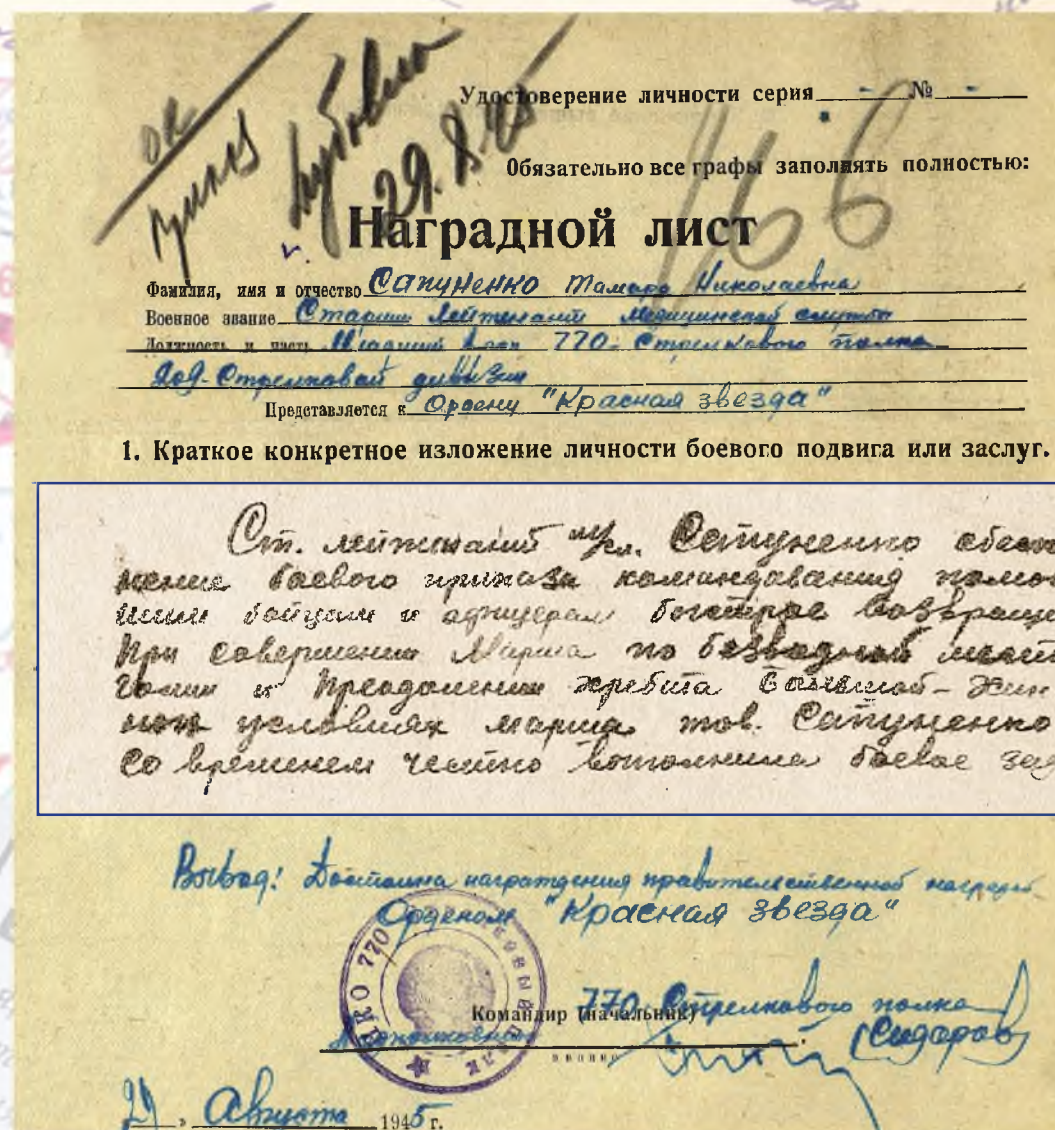 ок
29.8.45
166
Удостоверение личности серия - № -
Обязательно все графы заполнять полностью:
Наградной лист
Фамилия, имя и отчество Сапуненко Тамара Николаевна
Военное звание Старший Лейтенант Медицинской службы
Должность и часть Младший Врач 770 - Стрелкового полка
209 - Стрелковой дивизии
Представляется к Ордену "Красная звезда"
1. Краткое конкретное изложение личности боевого подвига или заслуг.
Ст. лейтенант м/сл. Сапуненко
жение боевого приказа командования
шим бойцам и офицерам быстрое возвраще
При совершении Марша по безводной
и Преодолении хребта Большой-Хин
ных условиях марша тов. Сапуненко
со временем честно выполнила боевое зад
Вывод: Достойна награждения правительственной
Орденом "Красная звезда"
НКО 770
Командир (начальник) 770 Стрелкового полка
(Сидоров)
звание
29 " Августа 1945 г.